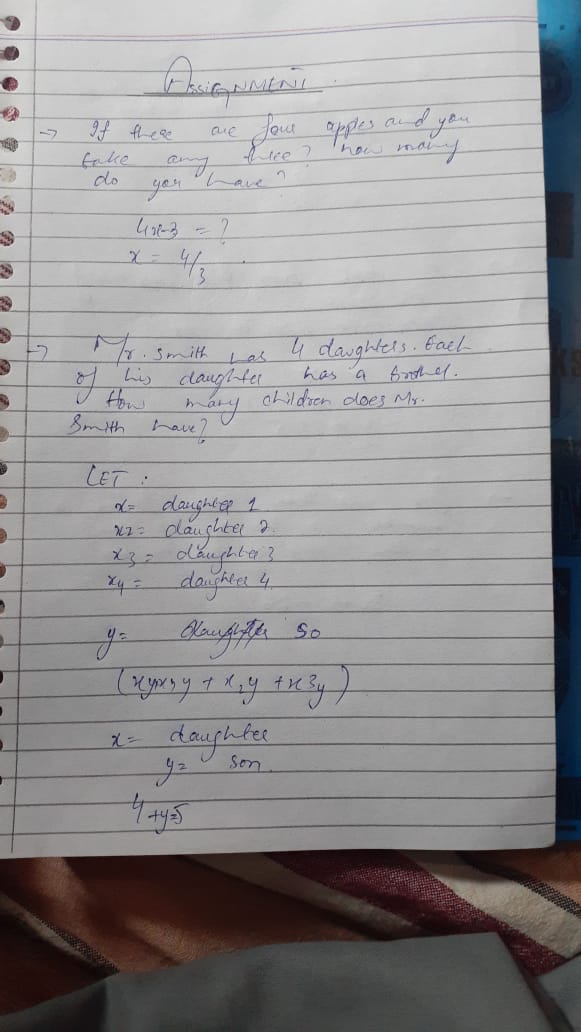 ASSIGNMENT
→ If there are four apples and you
take away three? how many
do you have?
4x-3 = ?
x = 4/3
→ Mr. Smith has 4 daughters. Each
of his daughter has a brother.
How many children does Mr.
Smith have?
LET :
x= daughter 1
x2= daughter 2
x3= daughter 3
x4= daughter 4
y= daughter so
+ x2y + x3y)
x= daughter
y= son
4+y=5